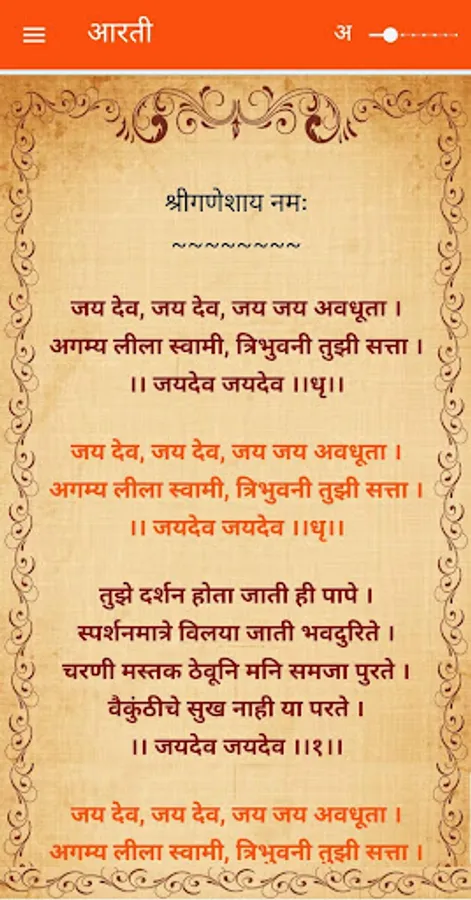 आरती
अ
श्रीगणेशाय नमः
~~~~~~~~
जय देव, जय देव, जय जय अवधूता ।
अगम्य लीला स्वामी, त्रिभुवनी तुझी सत्ता ।
।। जयदेव जयदेव ।।धृ।।
जय देव, जय देव, जय जय अवधूता ।
अगम्य लीला स्वामी, त्रिभुवनी तुझी सत्ता ।
।। जयदेव जयदेव ।।धृ।।
तुझे दर्शन होता जाती ही पापे ।
स्पर्शनमात्रे विलया जाती भवदुरिते ।
चरणी मस्तक ठेवूनि मनि समजा पुरते ।
वैकुंठीचे सुख नाही या परते ।
।। जयदेव जयदेव ।।१।।
जय देव, जय देव, जय जय अवधूता ।
अगम्य लीला स्वामी, त्रिभुवनी तुझी सत्ता ।